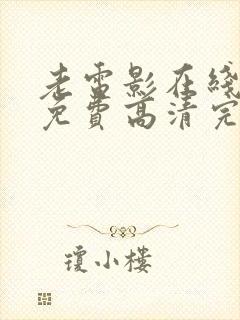 老雷影在綫
免費高清完
瓊小樓